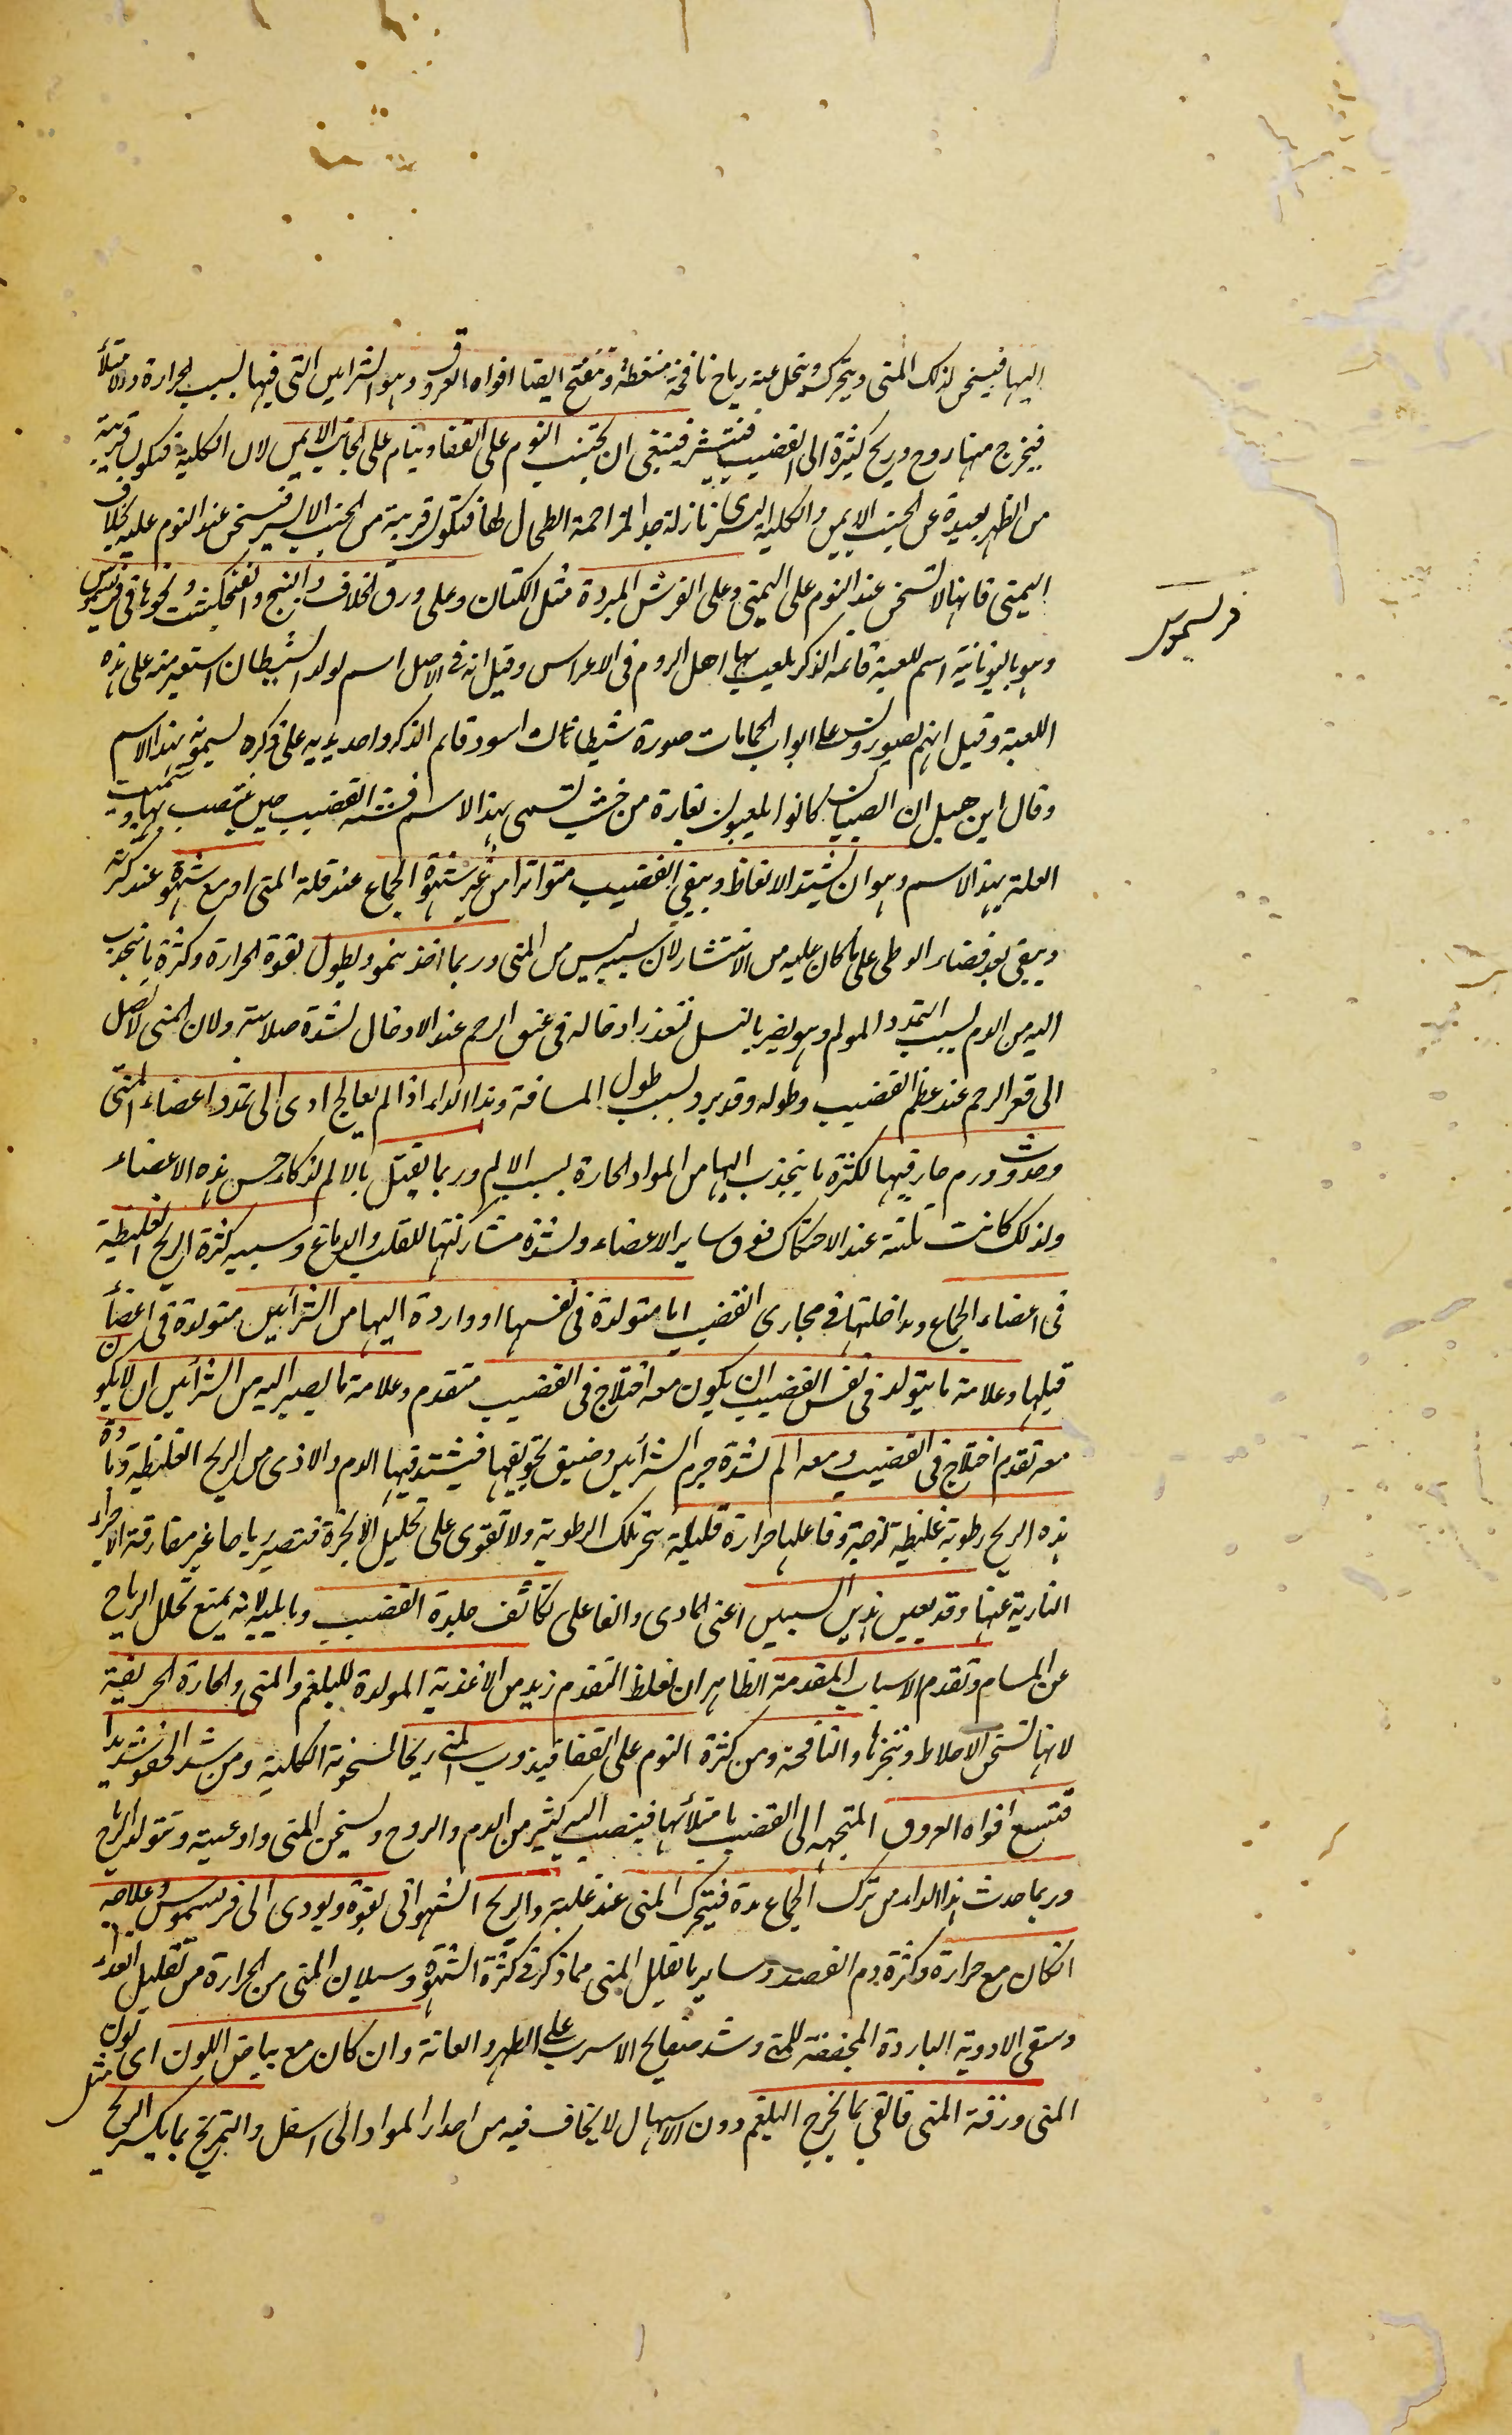 اليها فيسخن لذلك المنى ويتحرك ويتحلل عنه رياح نافخة منفطة وتنفتح ايضا افواه العروق وهو الشرايين التى فيها بسبب الحرارة والامتلأ
فيخرج منها روح وريح كثيرة الى القضيب فينتشر فينبغى ان يجتنب النوم على القفا وينام على الجانب الايمن لان الكلية فتكون قريبة
من الظهر بعيدة عن الجنب الايمن والكلية اليسرى نازلة جدا لمزاحمة الطحال لها فتكون قريبة من الجنب الايسر فتسخن عند النوم عليه بخلاف
اليمنى فانها لا تسخن عند النوم على اليمنى وعلى الفرش المبردة مثل الكتان وعلى ورق الخلاف والبنج والفنجنكشت ونحوها فى فريسموس
فريسموس
وهو باليونانية اسم للعبة قائمه الذكر يلعب بها اهل الروم فى الاعراس وقيل انه فى الاصل اسم لولد الشيطان استعير منه على هذه
اللعبة وقيل انهم يصورون على ابواب الحمامات صورة شيطان اسود قايم الذكر واحد يديه على ذكره يسمونه بهذا الاسم
وقال ابن هبل ان الصبيان كانوا يلعبون بفارة من خشب تسمى بهذا الاسم فشبه القضيب حين ينتصب بها وسميت
العلة بهذا الاسم وهو ان يشتد الانعاظ ويبقى القضيب متواترا من غير شهوة الجماع عند قلة المنى او مع شهوة عند كثرته
ويبقى بعد قضاء الوطى على ما كان عليه من الانتشار لان سببه ليس من المنى وربما اخذ ينمو ويطول لقوة الحرارة وكثرة ما ينجذب
اليه من الدم بسبب التمدد المولم وهو يضر بالنسل لتعذر ادخاله فى عنق الرحم عند الادخال لشدة صلابته ولان المنى لا يصل
الى قعر الرحم عند عظم القضيب وطوله وقد يبرد بسبب طول المسافة وهذا الداء اذا لم يعالج ادى الى تمدد اعضاء المنى
وحدوث ورم حار فيها لكثرة ما ينجذب اليها من المواد الحارة بسبب الالم وربما يقتل بالالم لذكاء حس هذه الاعضاء
ولذلك كانت تلتذ عند الاحتكاك فوق ساير الاعضاء ولشدة مشاركتها للقلب والدماغ وسببه كثرة الريح الغليظة
فى اعضاء الجماع ومداخلتها فى مجارى القضيب اما متولدة فى نفسها او واردة اليها من الشرائين متولدة فى اعضأ
قبلها وعلامة ما يتولد فى نفس القضيب ان يكون معه اختلاج فى القضيب متقدم وعلامة ما يصير اليه من الشرائين ان لا يكون
معه تقدم اختلاج فى القضيب ومعه الم لشدة جرم الشرائين وضيق تجويفها فيشتد فيها الدم والاذى من الريح الغليظة ومادة
هذه الريح رطوبة غليظة لزجة وفاعلها حرارة قليلة تبخر تلك الرطوبة ولا تقوى على تحليل الابخرة فتصير رياحا غير مفارقة الاجزاء
النارية عنها وقد يعين هذين السببين اعنى المادى والفاعلى تكاثف جلدة القضيب وما يليه لانه يمنع تحلل الرياح
عن المسام وتقدم الاسباب المقدمة الظاهر ان لفظ التقدم زيد من الاغذية المولدة للبلغم والمنى والحارة الحريفية
لانها تسخن الاخلاط وتبخرها والنافخة ومن كثرة النوم على القفا فيذوب المنى ريحا لسخونة الكلية ومن شد الحقو شديدا
فتتسع افواه العروق المتجهه الى القضيب بامتلائها فينصب اليه كثير من الدم والروح ويسخن المنى واوعيته وتتولد الرياح
وربما حدث هذا الداء من ترك الجماع مدة فيتحرك المنى عند غلبته والريح الشهوانى بقوة ويودى الى فريسموس وعلاجه
انكان مع حرارة وكثرة دم الفصد وساير ما تقليل المنى مما ذكر فى كثرة الشهوة وسيلان المنى من الحرارة من تقليل الغذاء
وسقى الادوية الباردة المجففة للمنى وشد صفايح الاسرب على الظهر والعانة وان كان مع بياض اللون اى لون مثل
المنى ورقة المنى فالقى بما يخرج البلغم دون الاسهال لا يخاف فيه من احدار المواد الى اسفل والتمريخ بما يكسر الريح